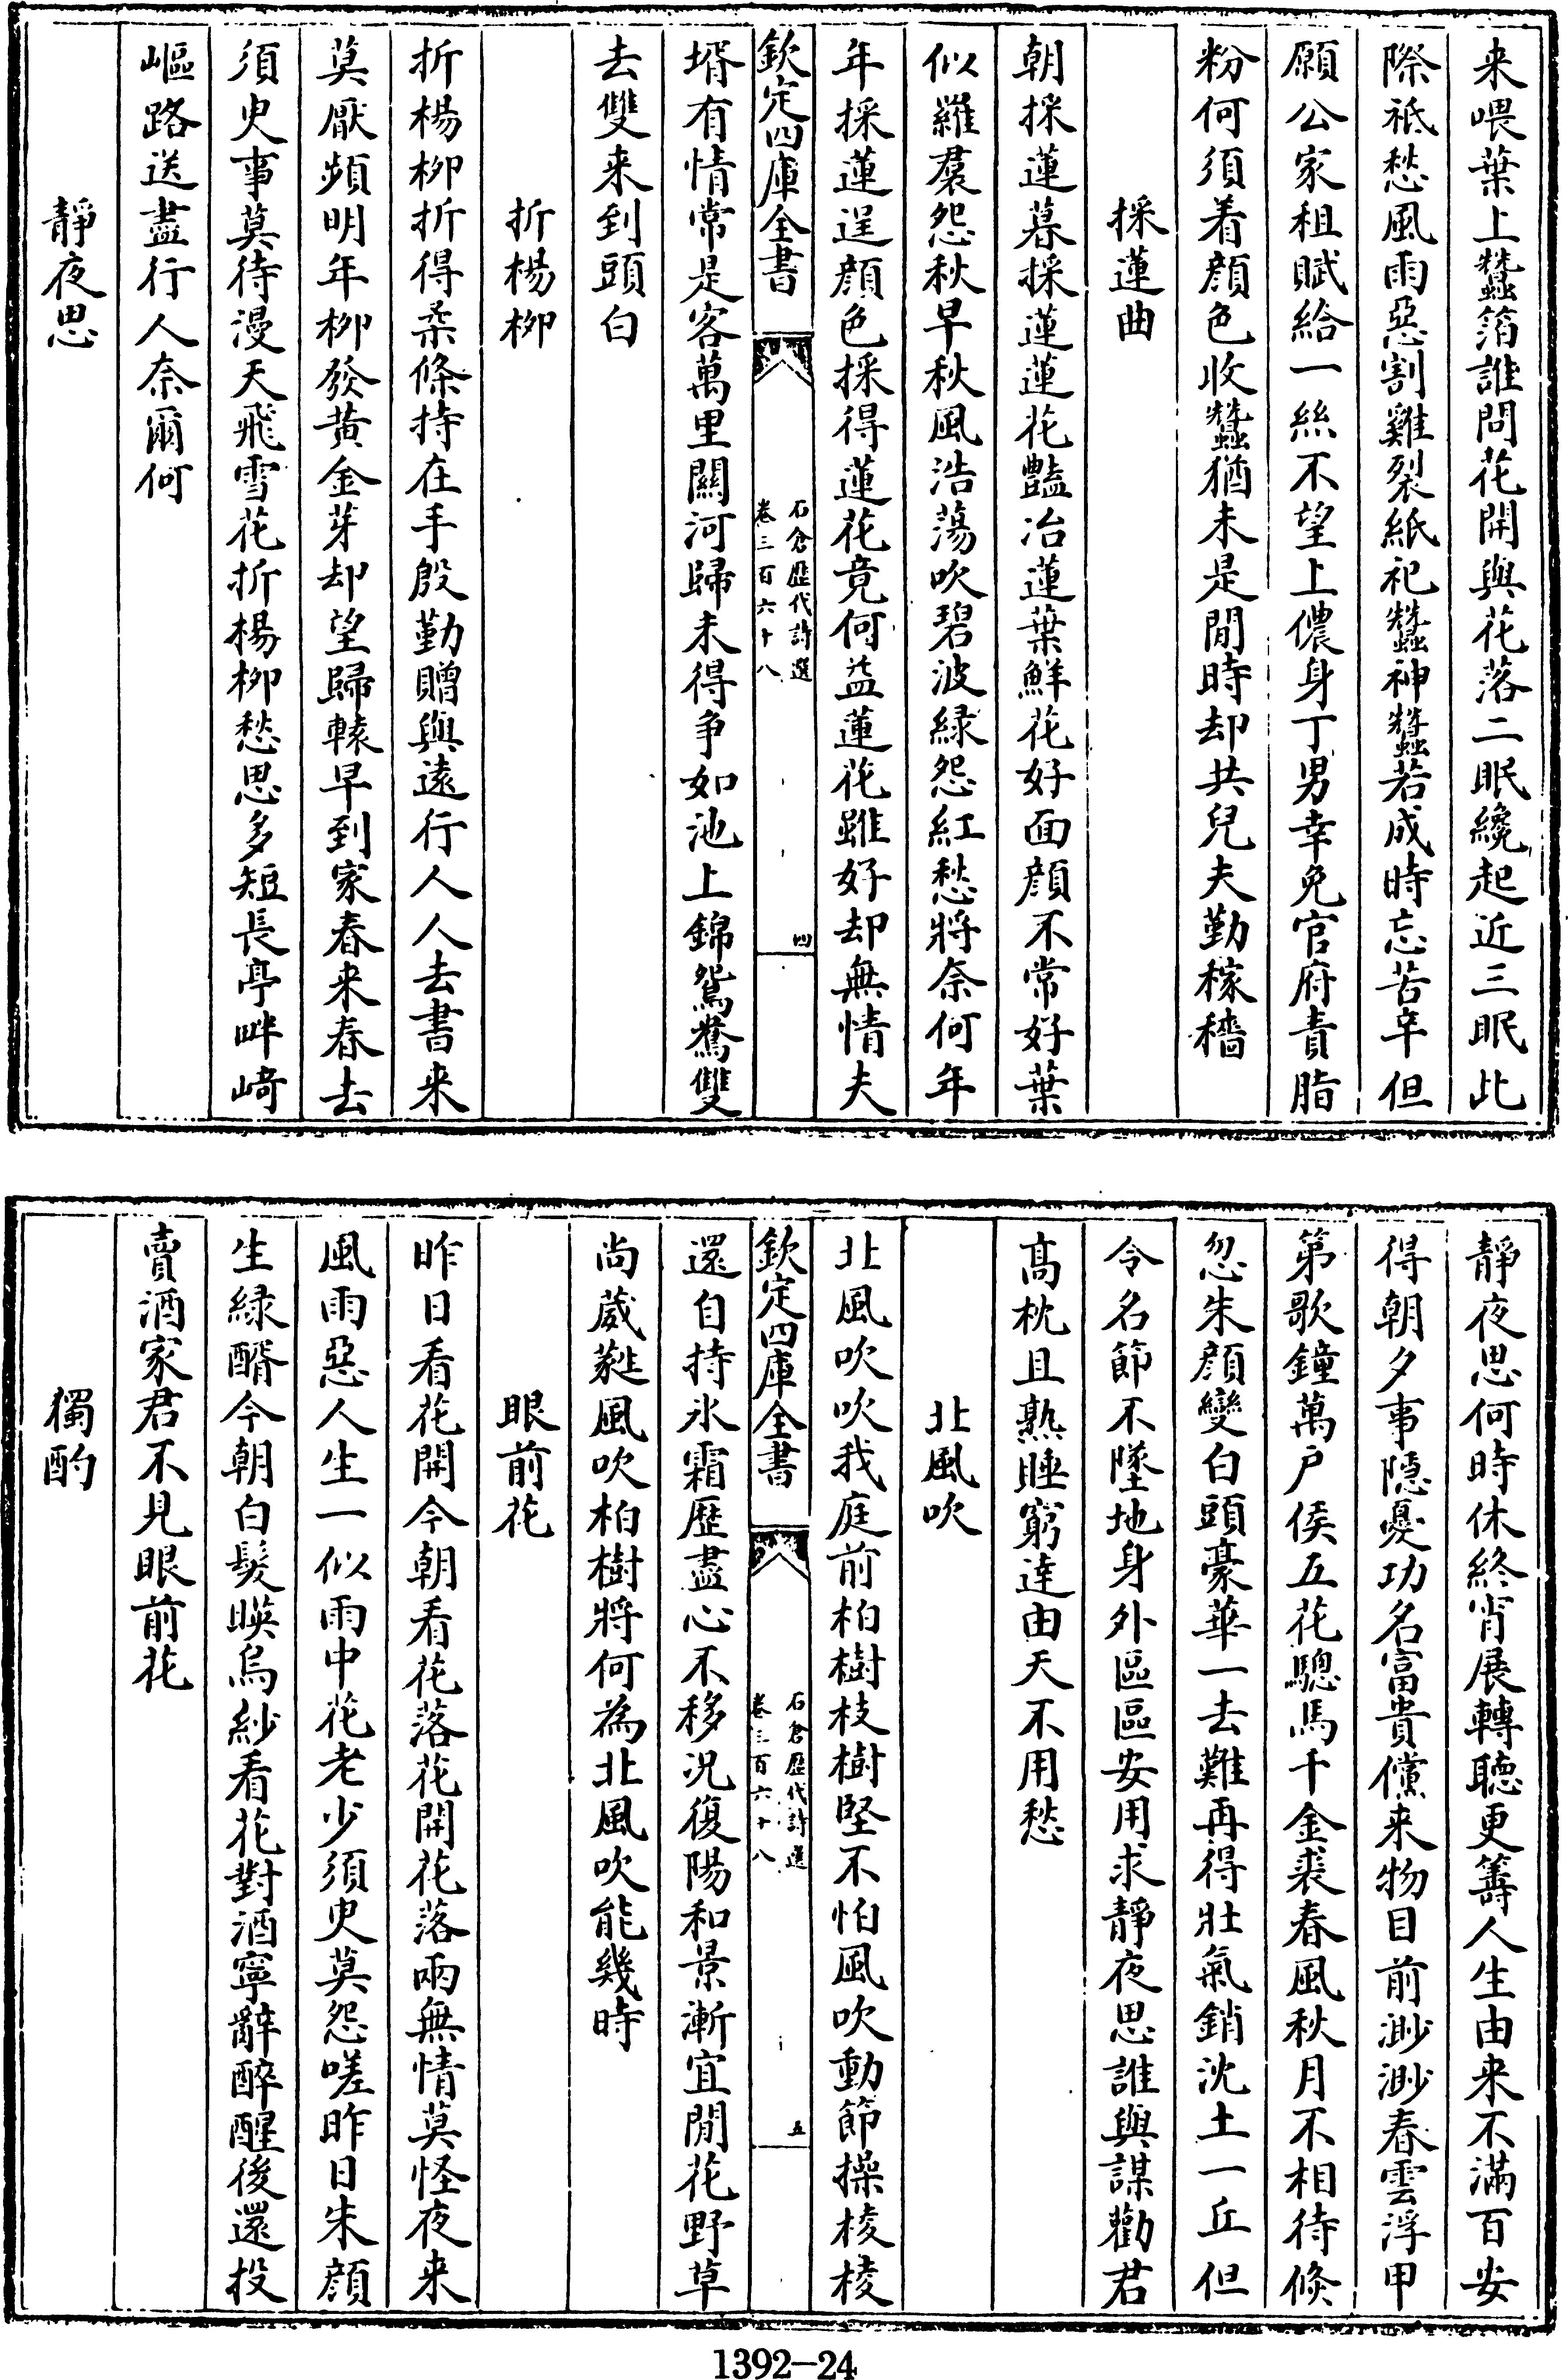 来喂葉上蠶箔誰問花開與花落二眠纔起近三眠此
際祗愁風雨惡割雞裂紙祀蠶神蠶若成時忘苦辛但
願公家租賦給一絲不望上儂身丁男幸免官府責脂
粉何須着顔色收蠶猶未是閒時却共兒夫勤稼穡
採蓮曲
朝採蓮暮採蓮蓮花豔冶蓮葉鮮花好面顔不常好葉
似羅裠怨秋早秋風浩蕩吹碧波緑怨紅愁將奈何年
年採蓮逞顔色採得蓮花竟何益蓮花雖好却無情夫
欽定四庫全書
石倉歴代詩選
卷三百六十八
四
壻有情常是客萬里關河歸未得争如池上錦鴛鴦雙
去雙来到頭白
折楊栁
折楊栁折得柔條持在手殷勤贈與逺行人人去書来
莫厭頻明年栁發黄金芽却望歸轅早到家春来春去
須臾事莫待漫天飛雪花折楊栁愁思多短長亭畔﨑
嶇路送盡行人奈爾何
靜夜思
靜夜思何時休終宵展轉聴更籌人生由来不滿百安
得朝夕事隠憂功名富貴儻来物目前渺渺春雲浮甲
第歌鐘萬户侯五花驄馬千金裘春風秋月不相待倐
忽朱顔變白頭豪華一去難再得壯氣銷沈土一丘但
令名節不墜地身外區區安用求靜夜思誰與謀勸君
髙枕且熟睡窮達由天不用愁
北風吹
北風吹吹我庭前柏樹枝樹堅不怕風吹動節操棱棱
欽定四庫全書
石倉歴代詩選
卷三百六十八
五
還自持氷霜歴盡心不移况復陽和景漸宜閒花野草
尚葳蕤風吹柏樹將何為北風吹能幾時
眼前花
昨日看花開今朝看花落花開花落兩無情莫怪夜来
風雨惡人生一似雨中花老少須臾莫怨嗟昨日朱顔
生緑醑今朝白髮暎烏紗看花對酒寧辭醉醒後還投
賣酒家君不見眼前花
獨酌
1392-24